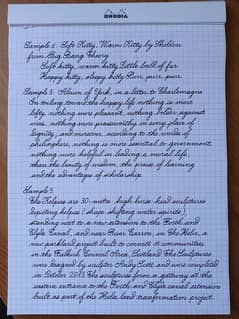 RHODIA
Sample 1. Soft Kitty, Warm Kitty by Sheldon
from Big Bang Theory
Soft kitty, warm kitty, Little ball of fur
Happy kitty, sleepy kitty Purr, purr, purr.
Sample 3. Alcuin of York, in a letter to Charlemagne
In toiling toward the happy life nothing is more
lofty, nothing more pleasant, nothing bolder against
vices, nothing more praiseworthy in every place of
dignity, and moreover, according to the words of
philosophers, nothing is more essential to government,
nothing more helpful in leading a moral life,
than the beauty of wisdom, the praise of learning
and the advantages of scholarship.
Sample 5.
The Kelpies are 30-metre high horse-head sculptures
depicting kelpies (shape-shifting water spirits),
standing next to a new extension to the Forth and
Clyde Canal, and near River Carron, in The Helix, a
new parkland project built to connect 16 communities
in the Falkirk Council Area, Scotland. The sculptures
were designed by sculptor Andy Scott and were completed
in October 2013. The sculptures form a gateway at the
eastern entrance to the Forth and Clyde canal extension
built as part of the Helix land transformation project.